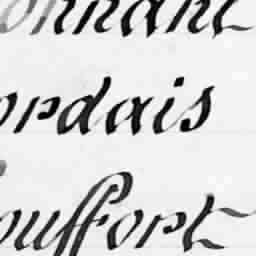 onnant
ordais
ouffort